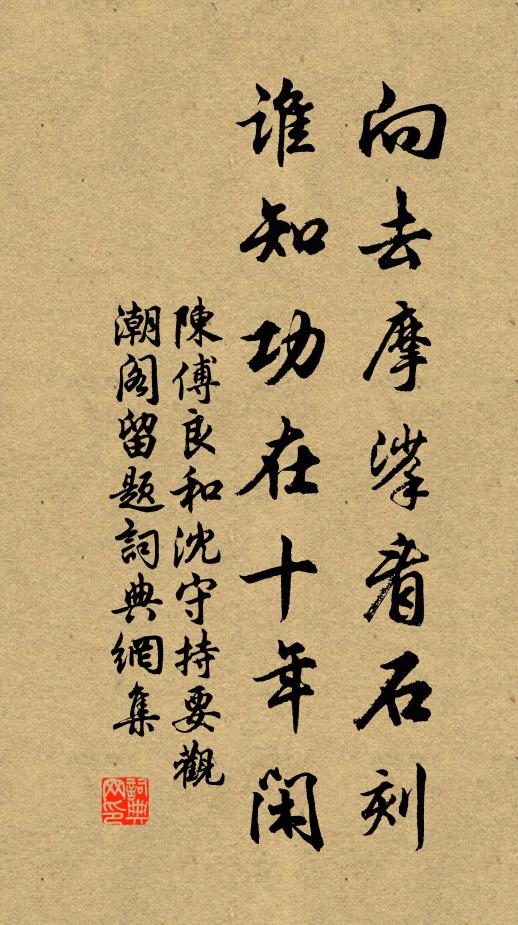 向去摩挲看石刻
谁知功在十年闲
陳傅良和沈守持要觀
潮阁留题詞典網集
詞典网印